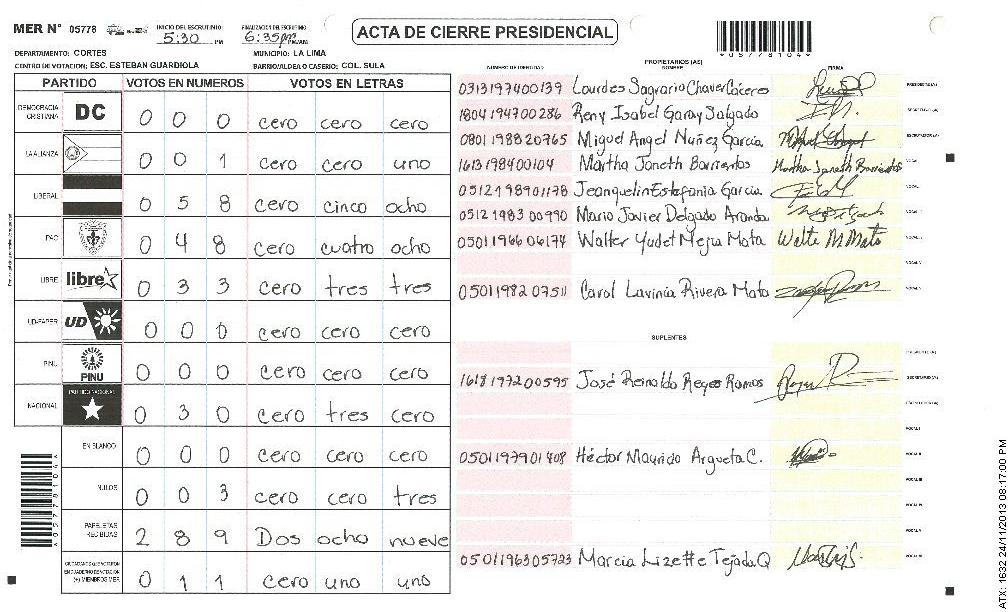 MER N° 05778
INICIO DEL ESCRUTINIO 5:30 PM
FINALIZACION DEL ESCRUTINIO 6:35 PM/AM
ACTA DE CIERRE PRESIDENCIAL
*05778104*
DEPARTAMENTO: CORTES
MUNICIPIO: LA LIMA
CENTRO DE VOTACION: ESC. ESTEBAN GUARDIOLA
BARRIO/ALDEA O CASERIO: COL. SULA
PARTIDO VOTOS EN NUMEROS VOTOS EN LETRAS
DEMOCRACIA CRISTIANA DC 0 0 0 cero cero cero
LA ALIANZA 0 0 1 cero cero uno
LIBERAL 0 5 8 cero cinco ocho
PAC 0 4 8 cero cuatro ocho
LIBRE libre 0 3 3 cero tres tres
UD-FAPER UD 0 0 0 cero cero cero
PINU PINU 0 0 0 cero cero cero
NACIONAL PARTIDO NACIONAL 0 3 0 cero tres cero
EN BLANCO 0 0 0 cero cero cero
NULOS 0 0 3 cero cero tres
PAPELETAS RECIBIDAS 2 8 9 Dos ocho nueve
CIUDADANOS QUE VOTARON EN CUADERNO DE VOTACION (+) MIEMBROS MER 0 1 1 cero uno uno
*05778104*
NUMERO DE IDENTIDAD
PROPIETARIOS (AS)
NOMBRE
FIRMA
0313197400139 Lourdes Sagrario Chavez Cáceres PRESIDENTE (A)
1804194700286 Reny Isabel Garay Salgado SECRETARIO (A)
0801198820765 Miguel Angel Nuñez García ESCRUTADOR (A)
1613198400104 Martha Janeth Barrientos Martha Janeth Barrientos VOCAL I
0512198901178 Jeanquelin Estefania Garcia VOCAL II
0512198300990 Mario Javier Delgado Aranda VOCAL III
0501196606174 Walter Yudet Mejia Mata Walte M Mata VOCAL IV
VOCAL V
0501198207511 Carol Lavinia Rivera Mata VOCAL VI
SUPLENTES
PRESIDENTE (A)
1618197200595 José Reinaldo Reyes Ramos SECRETARIO (A)
ESCRUTADOR (A)
VOCAL I
0501197901408 Héctor Mauricio Argueta C. VOCAL II
VOCAL III
VOCAL IV
VOCAL V
0501196305723 Marcia Lizette Tejada Q VOCAL VI
ATX: 1632 24/11/2013 08:17:00 PM